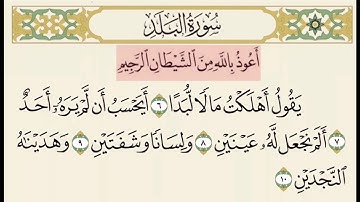 سُورَةُ الْبَلَدِ
أَعُوذُ بِاللَّهِ مِنَ الشَّيْطَانِ الرَّجِيمِ
يَقُولُ أَهْلَكْتُ مَالًا لُّبَدًا ٦ أَيَحْسَبُ أَن لَّمْ يَرَهُۥٓ أَحَدٌ
٧ أَلَمْ نَجْعَل لَّهُۥ عَيْنَيْنِ ٨ وَلِسَانًا وَشَفَتَيْنِ ٩ وَهَدَيْنَٰهُ
ٱلنَّجْدَيْنِ ١٠